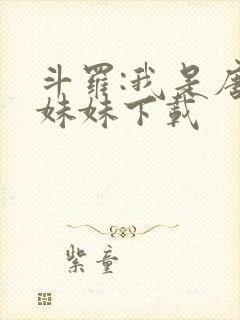 斗羅:我是唐
妹妹下載
紫童